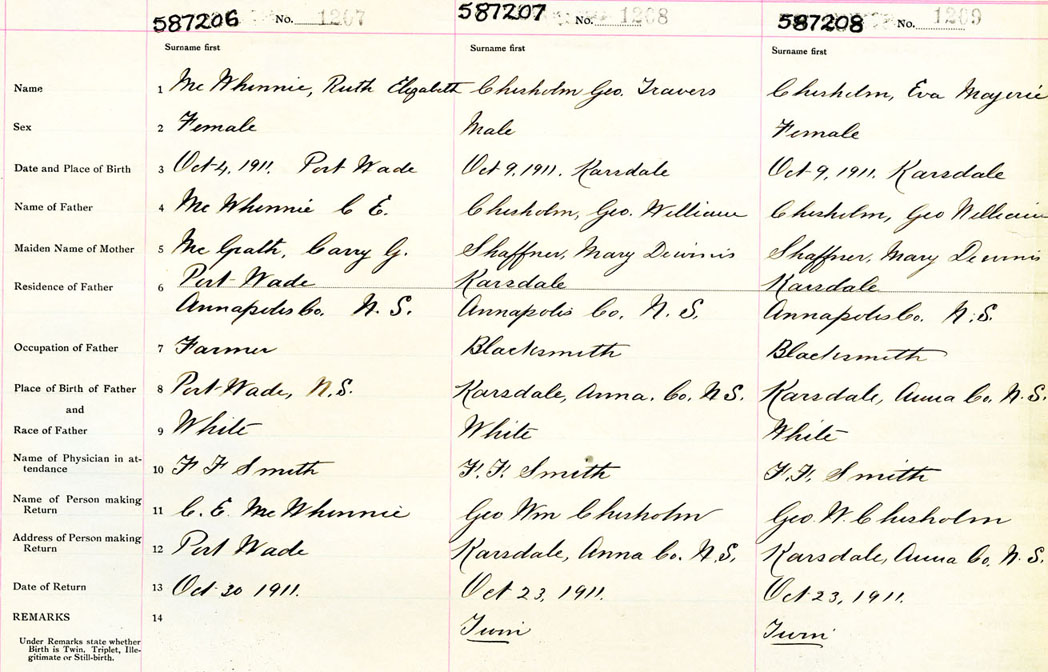 587206 No. 1207 587207 No. 1208 587208 No. 1209
Surname first Surname first Surname first
Name 1 Mc Whinnie, Ruth Elizabeth Chisholm Geo. Travers Chisholm, Eva Majorie
Sex 2 Female Male Female
Date and Place of Birth 3 Oct 4, 1911. Port Wade Oct 9, 1911. Karsdale Oct 9, 1911. Karsdale
Name of Father 4 Mc Whinnie C E. Chisholm, Geo. William Chisholm, Geo William
Maiden Name of Mother 5 Mc Grath, Carry G. Shaffner, Mary Shaffner, Mary
Residence of Father 6 Port Wade Karsdale Karsdale
Annapolis Co. N. S. Annapolis Co. N. S. Annapolis Co. N. S.
Occupation of Father 7 Farmer Blacksmith Blacksmith
Place of Birth of Father 8 Port Wade, N.S. Karsdale, Anna. Co. N S. Karsdale, Anna Co. N. S.
and
Race of Father 9 White White White
Name of Physician in at-
tendance 10 F F Smith F. F. Smith F. F. Smith
Name of Person making
Return 11 C. E. Mc Whinnie Geo Wm Chisholm Geo. W. Chisholm
Address of Person making
Return 12 Port Wade Karsdale, Anna Co. N.S. Karsdale, Anna Co. N. S.
Date of Return 13 Oct 30 1911. Oct 23, 1911. Oct 23, 1911.
REMARKS 14 Twin Twin
Under Remarks state whether
Birth is Twin, Triplet, Ille-
gitimate or Still-birth.